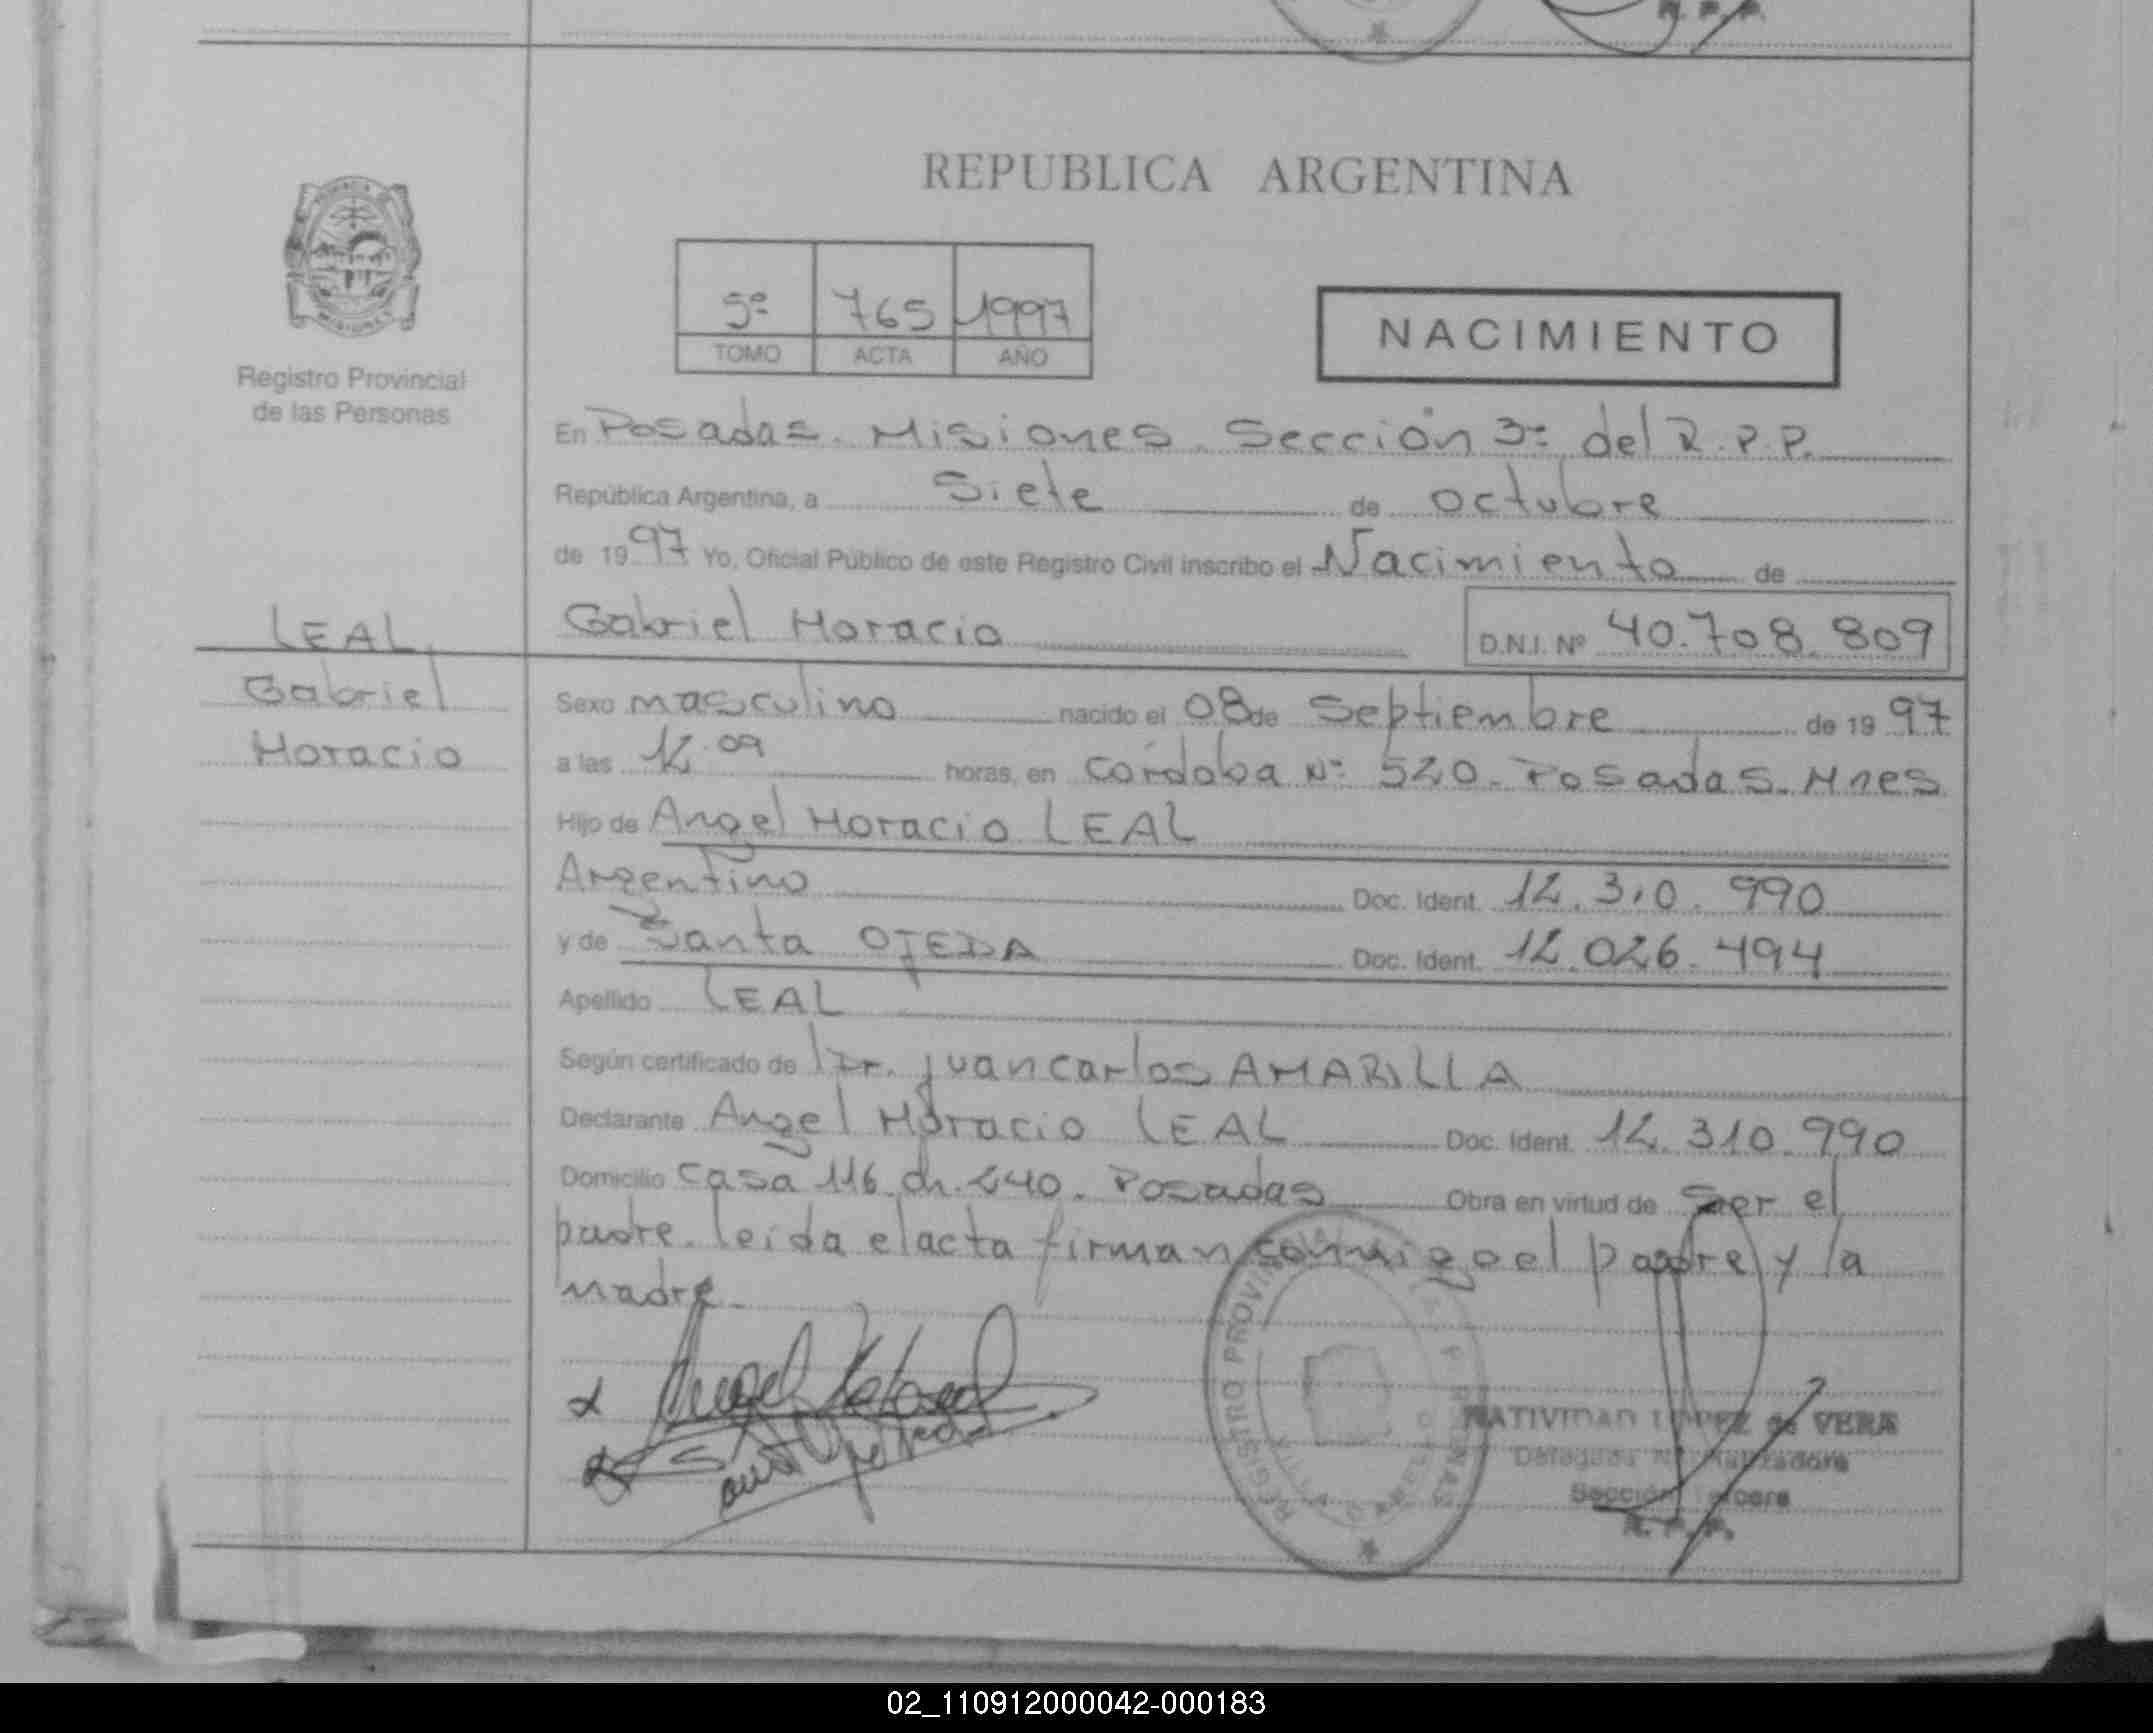 REPUBLICA ARGENTINA
PROVINCIA
MISIONES
Registro Provincial
de las Personas
5º 765 1997
TOMO ACTA AÑO
NACIMIENTO
En Posadas. Misiones. Sección 3º del R.P.P.
República Argentina, a Siete de octubre
de 1997 Yo, Oficial Público de este Registro Civil inscribo el Nacimiento de
LEAL
Gabriel
Horacio
Gabriel Horacio D.N.I. Nº 40.708.809
Sexo masculino nacido el 08 de Septiembre de 1997
a las 12.09 horas, en Córdoba Nº 520. Posadas. Mnes
Hijo de Angel Horacio LEAL
Argentino Doc. Ident. 12.310.990
y de Santa OJEDA Doc. Ident. 12.026.494
Apellido LEAL
Según certificado de Dr. Juan Carlos AMARILLA
Declarante Angel Horacio LEAL Doc. Ident. 12.310.990
Domicilio Casa 116. ch. 240. Posadas Obra en virtud de Ser el
padre. leida el acta firman conmigo el padre y la
madre.
REGISTRO PROVINCIAL
NATIVIDAD LOPEZ de VERA
Delegada
Sección Tercera
R. P. P.
02_110912000042-000183